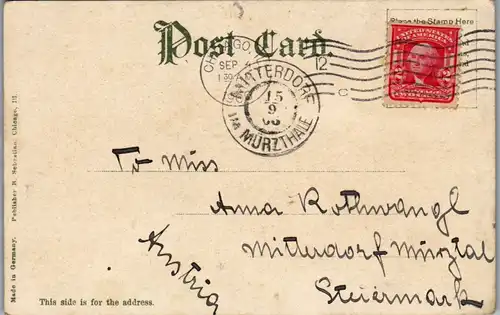 Place the Stamp Here
Post Card.
CHICAGO,
SEP 4
12
C
MITTERDORF
15
9
IM MÜRZTHALE
UNITED STATES
To Miss
Anna Rothwangl
Mitterdorf Mürztal
Steiermark
Austria
This side is for the address.
Made in Germany. Publisher R. Sebastian. Chicago, Ill.